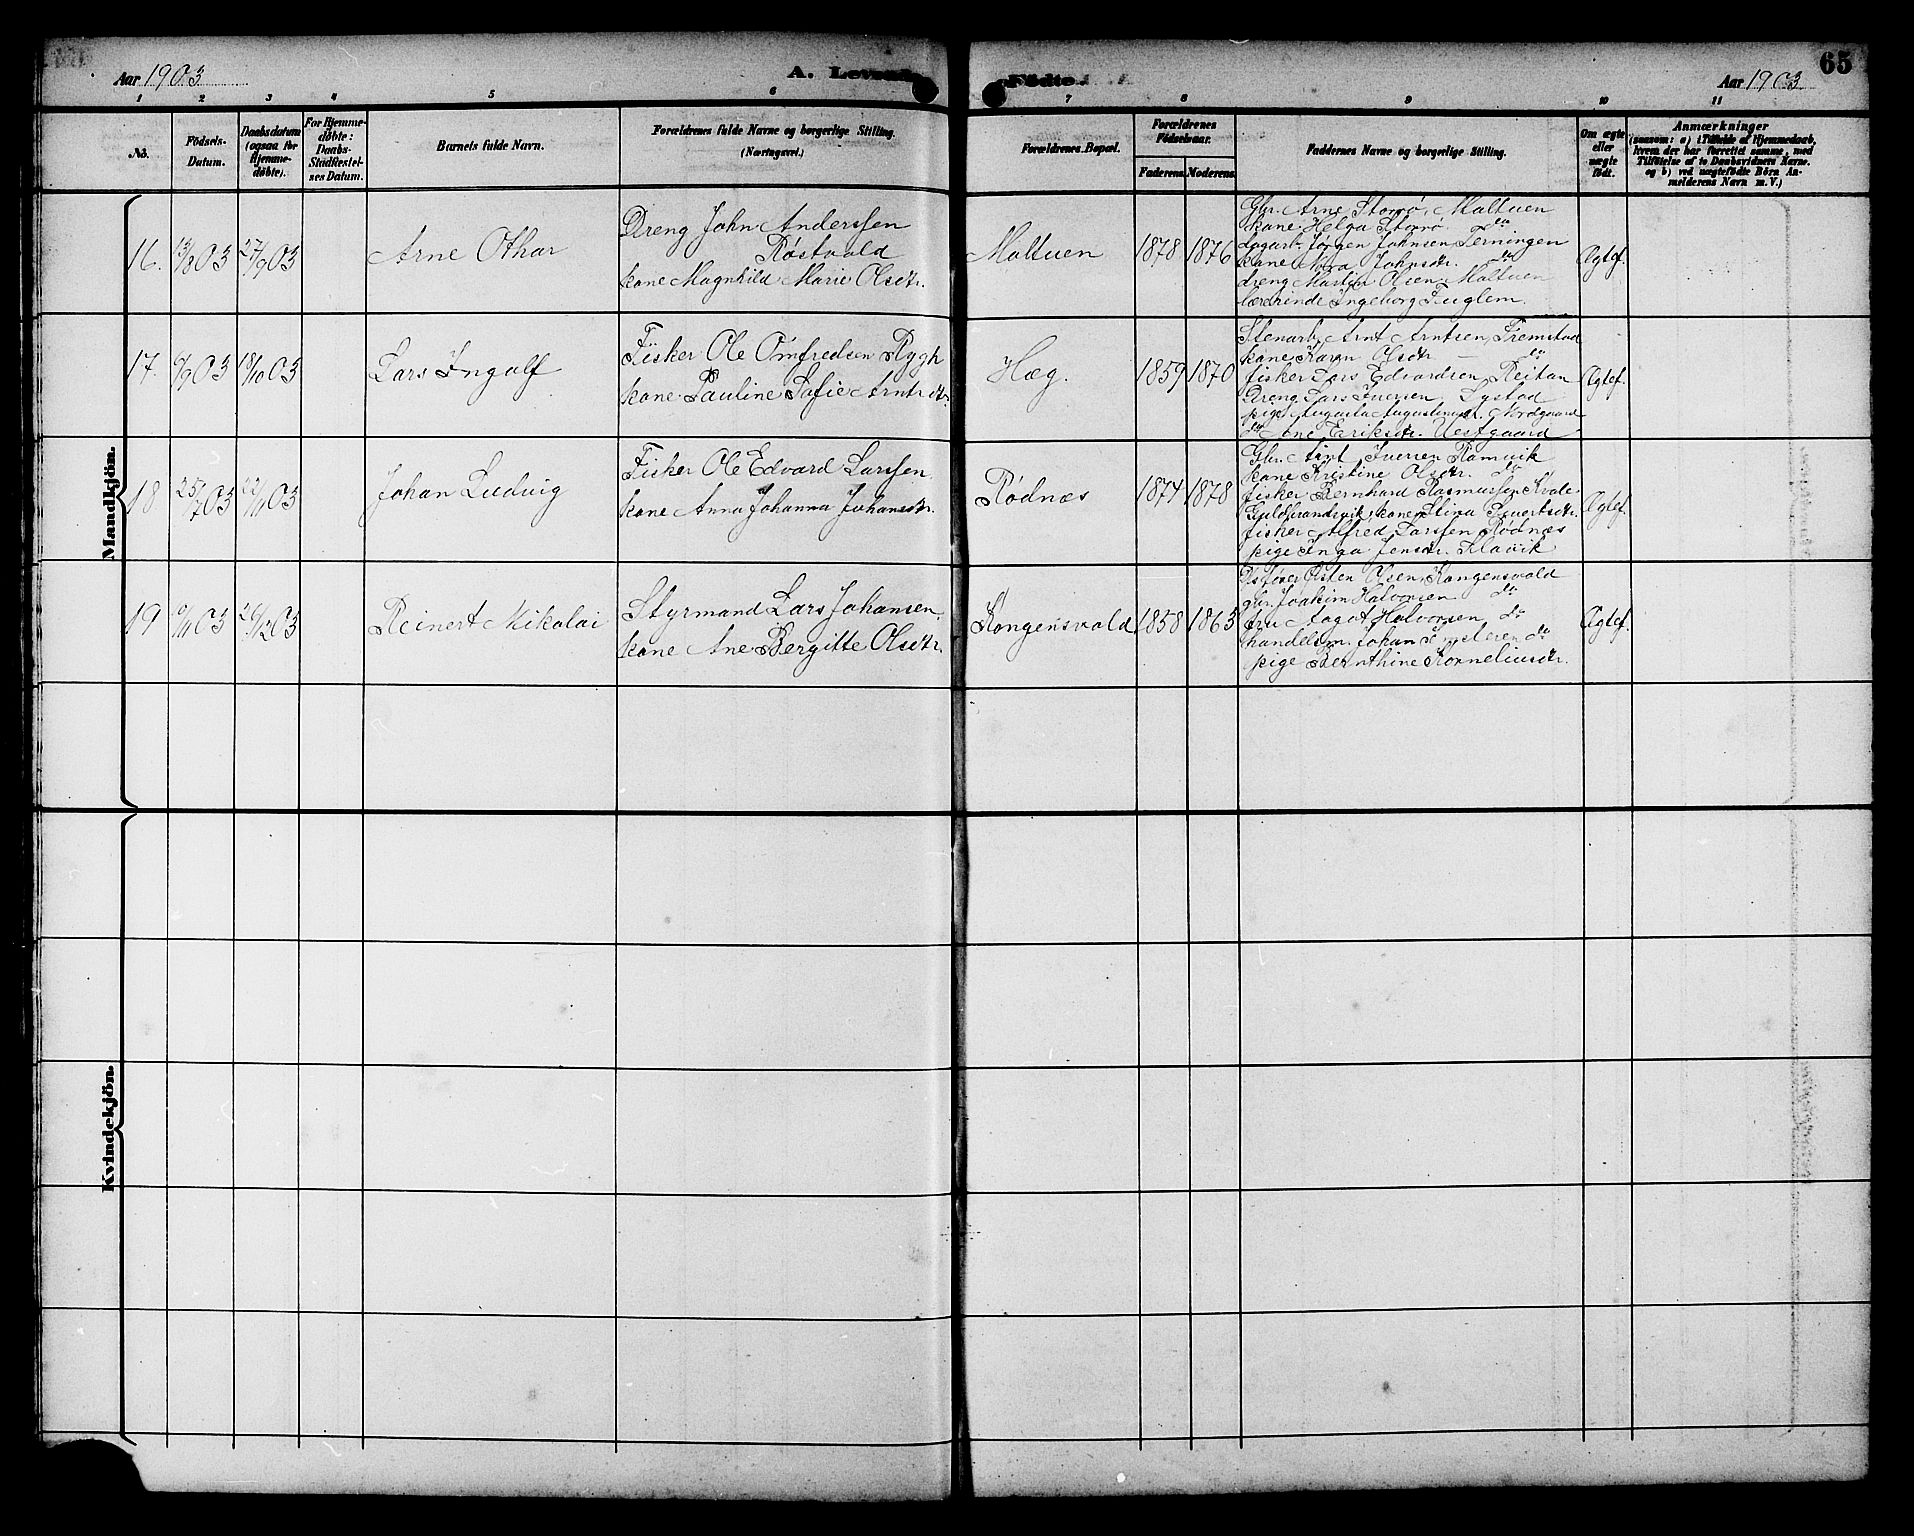 Aar 1903
A. Levende
Födte.
Aar 1903
65
1 2 3 4 5 6 7 8 9 10 11
No.
Födsels-
Datum.
Daabsdatum
(ogsaa for
Hjemme-
döbte).
For Hjemme-
döbte:
Daabs-
Stadfæstel-
ses Datum.
Barnets fulde Navn.
Forældrenes fulde Navne og borgerlige Stilling.
(Næringsvei.)
Forældrenes Bopæl.
Forældrenes
Födselsaar.
Faderens. Moderens.
Faddernes Navne og borgerlige Stilling.
Om ægte
eller
uægte
födt.
Anmærkninger
(saasom: a) i Tilfælde af Hjemmedaab,
hvem der har forrettet samme, med
Tilföielse af to Daabsvidners Navne.
og b) ved uægtefödte Börn An-
melderens Navn m. V.)
Mandkjön.
16. 13/8 03 27/9 03
Arne Othar
Dreng John Anderssen
Röstvold
kone Magnhild Marie Olsdtr.
Maltuen
1878 1876
Gbr. Arne Storrø, Maltuen
kone Helga Storrø do
dagarb. Jørgen Johnsen Terningen
kone Johnsdtr. do
dreng Martin Olsen Maltuen
lærerinde Ingeborg Fuglem.
Ægtef.
17. 6/9 03 18/10 03
Lars Ingolf
Fisker Ole Omfredsen Rygh
kone Pauline Sofie Arntsdtr.
Hæg.
1859 1870
Stenarb. Arnt Arntsen, Fremstad
kone Karen Olsdtr — do
fisker Lars Edvardsen Reitan
Dreng Lars Iversen Lystad
pige Augusta Augustinusdtr. Nordgaard
do Ane Eriksdtr. Vestgaard
Ægtef.
18 25/7 03 22/11 03
Johan Ludvig
Fisker Ole Edvard Larssen
kone Anna Johanna Johansdtr.
Rödnæs
1874 1878
Gbr. Arnt Iversen Ramvik
kone Kristine Olsdtr. do
fisker Bernhard Rasmussen Kvale
Guldbrandsvik, kone Stina Sivertsdtr.
fisker Alfred Larssen Rödnæs
pige Inga Jensdtr. Slavik
Ægtef.
19 9/11 03 26/12 03
Reinert Mikolai
Styrmand Lars Johansen
kone Ane Bergitte Olsdtr.
Kongensvold
1858 1863
Østen Olsen, Kongensvold
gbr. Joakim Halvorsen do
fru Aagot Halvorsen do
handelsm. Johan do
pige Bernthine Korneliusdtr.
Ægtef.
Kvindekjön.